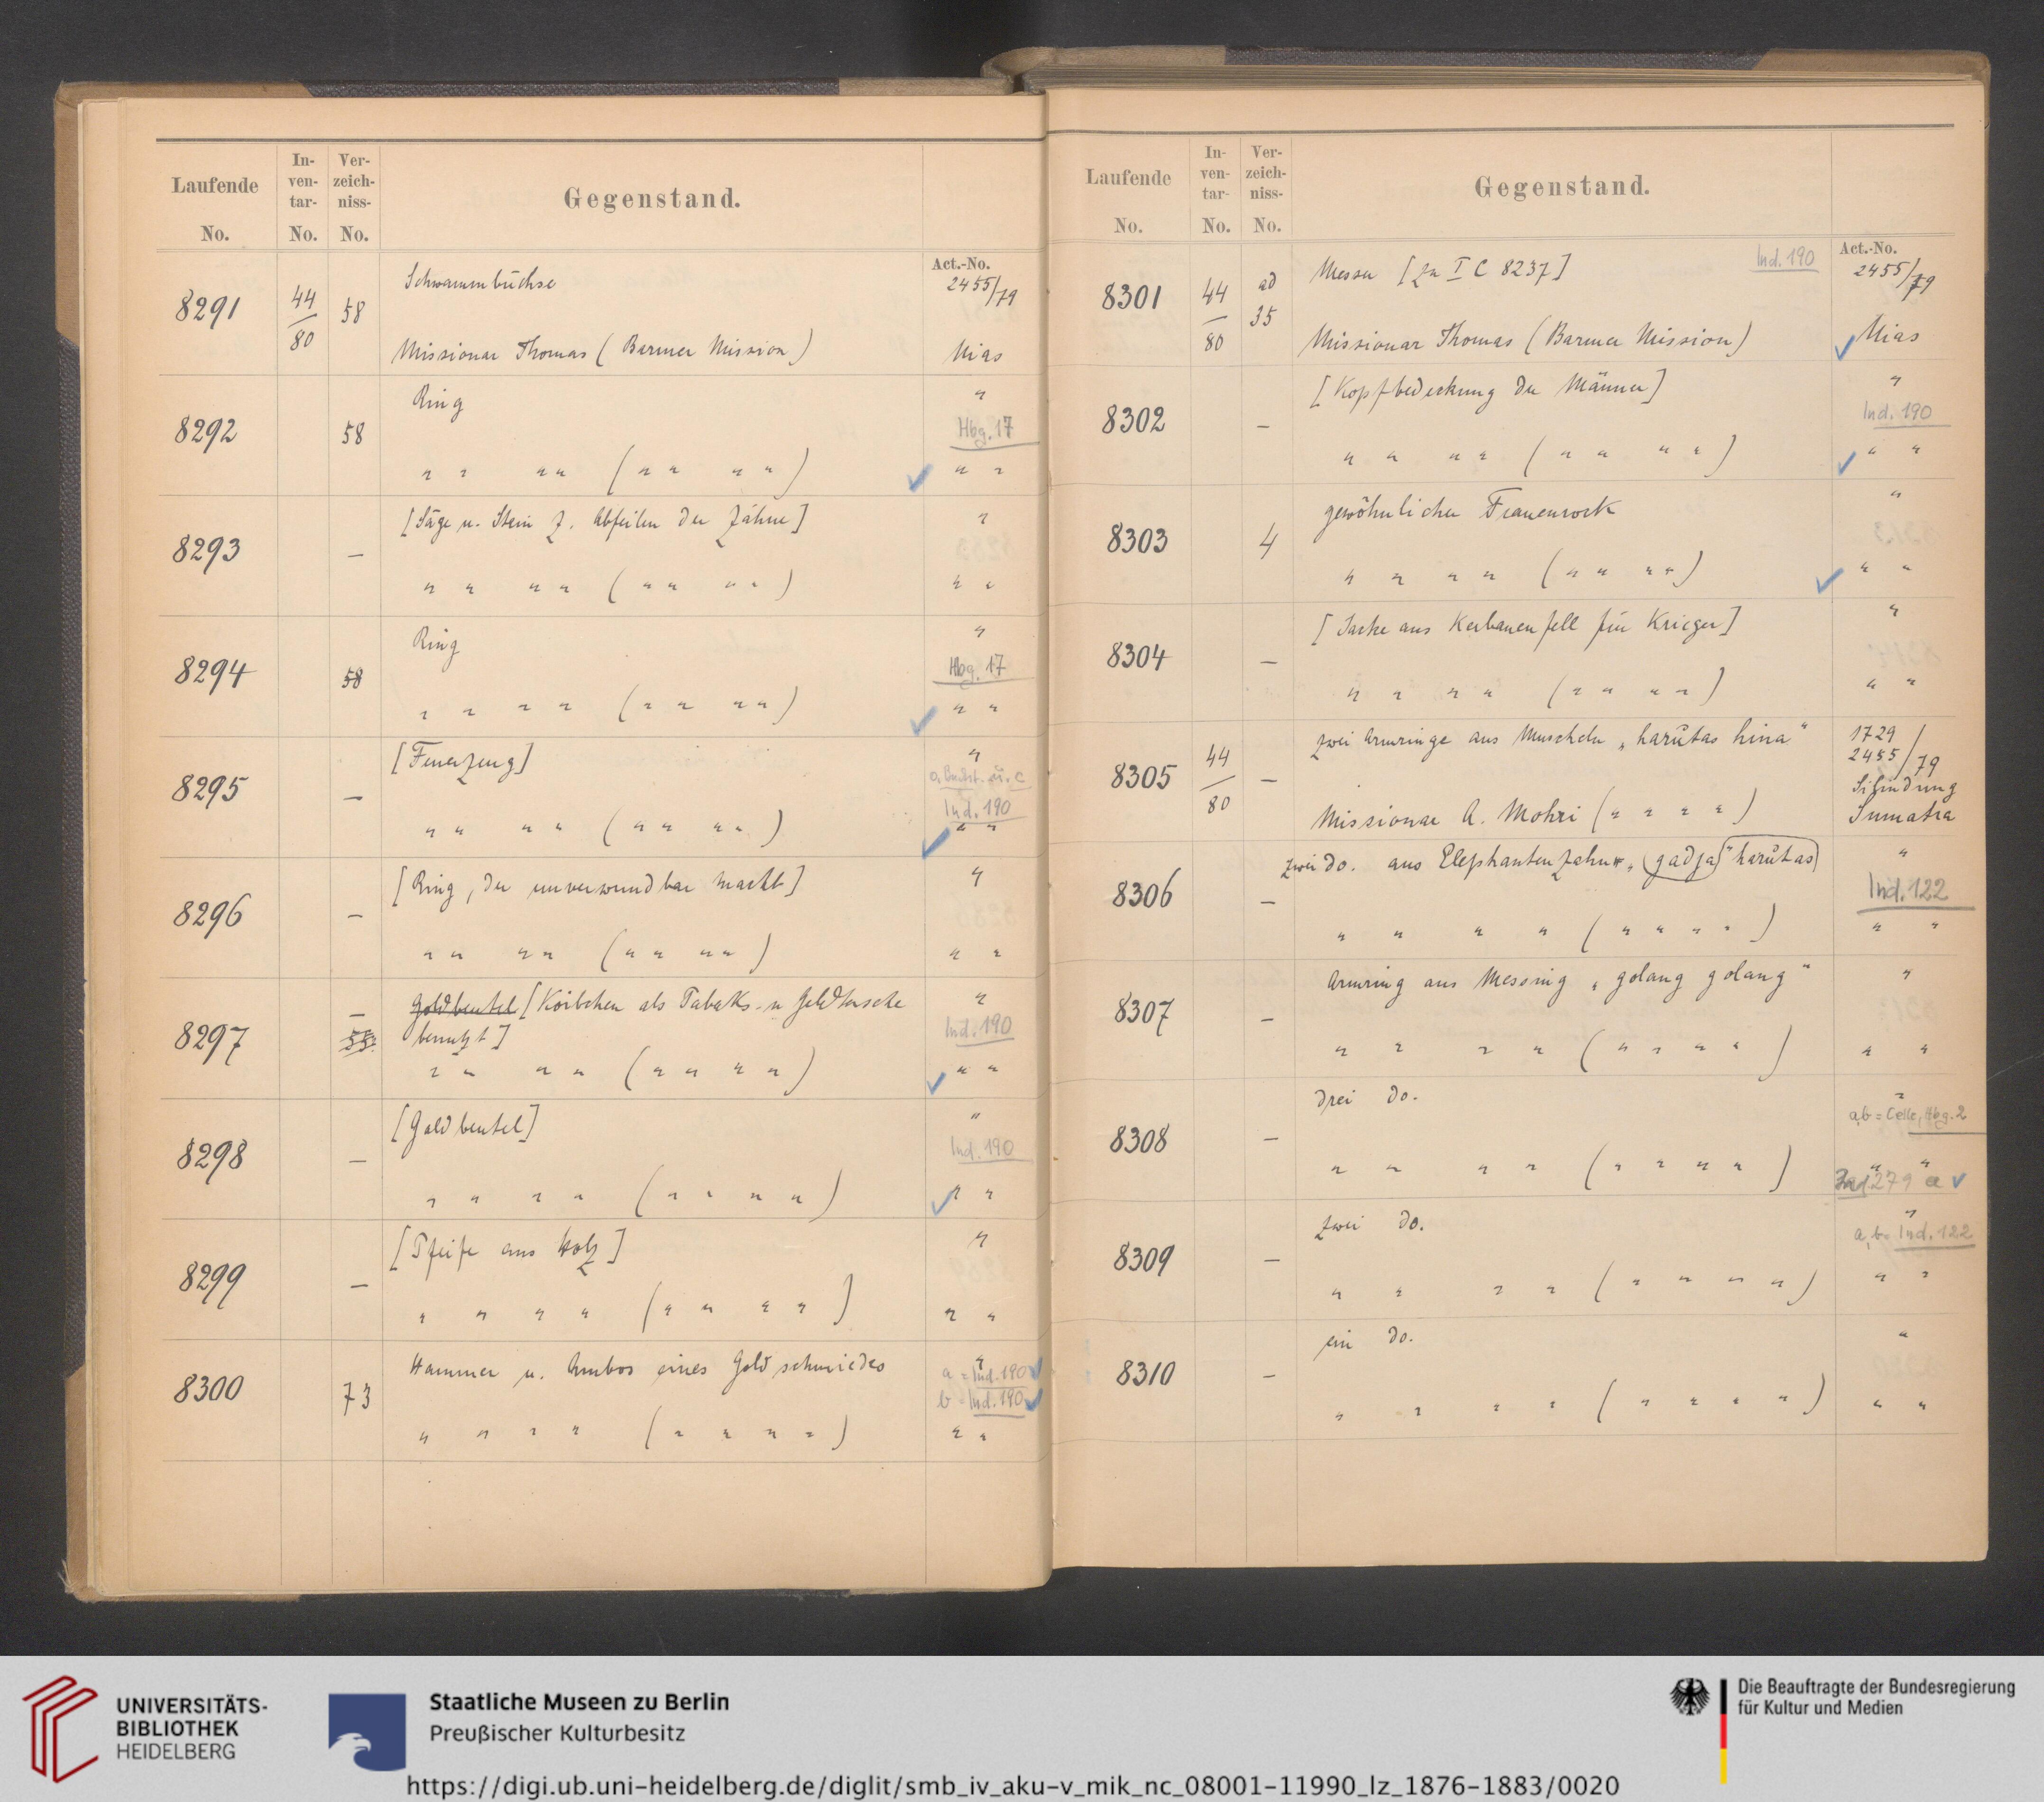 Laufende No.
In-ven-tar-No.
Ver-zeich-niss-No.
Gegenstand.
Act.-No.
8291 44/80 58 Schwammbüchse 2455/79
Missionar Thomas (Barmer Mission) Nias
8292 58 Ring "
Hbg. 17
" " " " ( " " " " ) " "
8293 — [Säge u. Stein z. Abfeilen der Zähne] "
" " " " ( " " " " ) " "
8294 58 Ring "
Hbg. 17
" " " " ( " " " " ) " "
8295 — [Feuerzeug] "
Ind. 190
" " " " ( " " " " ) " "
8296 — [Ring, der unverwundbar macht] "
" " " " ( " " " " ) " "
8297 — 55 Goldbeutel [Körbchen als Tabaks- u Geldtasche "
benutzt] Ind. 190
" " " " ( " " " " ) " "
8298 — [Goldbeutel] "
Ind. 190
" " " " ( " " " " ) " "
8299 — [Pfeife aus Holz] "
" " " " ( " " " " ) " "
8300 73 Hammer u. Ambos eines Goldschmiedes "
a = Ind. 190
b = Ind. 190
" " " " ( " " " " ) " "
Laufende No.
In-ven-tar-No.
Ver-zeich-niss-No.
Gegenstand.
Act.-No.
8301 44/80 ad 35 Messer [zu I C 8237] Ind. 190 2455/79
Missionar Thomas (Barmer Mission) Nias
8302 — [Kopfbedeckung der Männer] "
Ind. 190
" " " " ( " " " " ) " "
8303 4 gewöhnlicher Frauenrock "
" " " " ( " " " " ) " "
8304 — [Jacke aus Kerbauenfell für Krieger] "
" " " " ( " " " " ) " "
8305 44/80 — zwei Armringe aus Muscheln „harutas hina" 1729
2455/79
Silindung
Missionar A. Mohri ( " " " " ) Sumatra
8306 — zwei do. aus Elephantenzahn „gadja" harutas "
Ind. 122
" " " " ( " " " " ) " "
8307 — Armring aus Messing „golang golang" "
" " " " ( " " " " ) " "
8308 — drei do. "
a,b = Celle, Hbg. 2
" " " " ( " " " " ) " "
279 a
8309 — zwei do. "
a,b = Ind. 122
" " " " ( " " " " ) " "
8310 — ein do. "
" " " " ( " " " " ) " "
UNIVERSITÄTS-
BIBLIOTHEK
HEIDELBERG
Staatliche Museen zu Berlin
Preußischer Kulturbesitz
Die Beauftragte der Bundesregierung
für Kultur und Medien
https://digi.ub.uni-heidelberg.de/diglit/smb_iv_aku-v_mik_nc_08001-11990_lz_1876-1883/0020